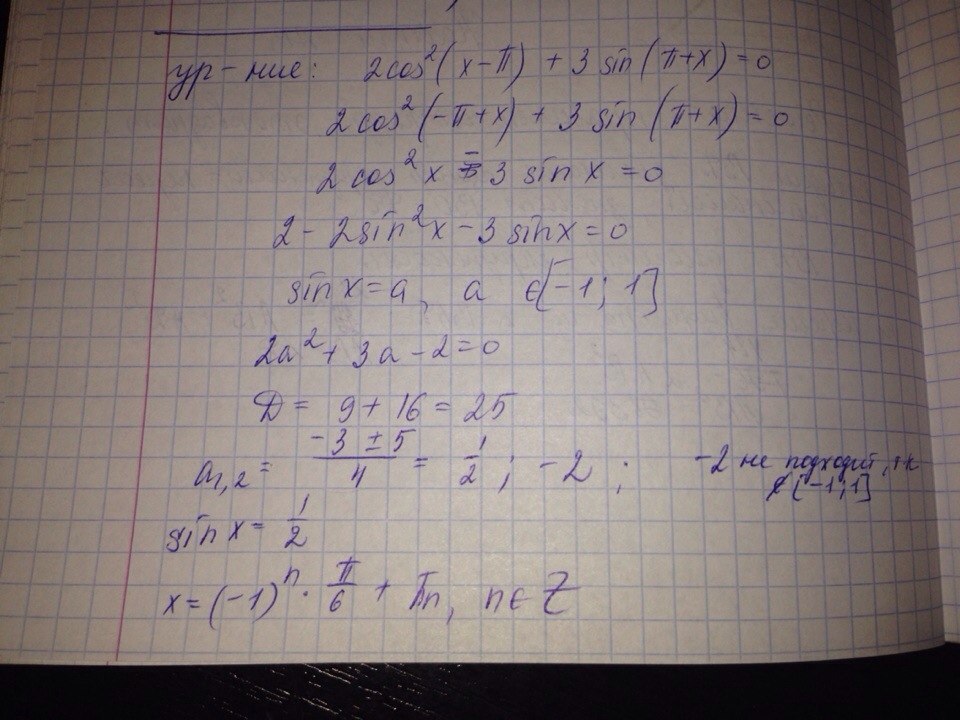 ур-ние: 2cos²(x-π) + 3 sin(π+x)=0
2cos²(-π+x) + 3 sin(π+x)=0
2cos²x - 3 sin x = 0
2 - 2sin²x - 3 sinx = 0
sin x = a, a ∈[-1; 1]
2a² + 3a - 2 = 0
D = 9 + 16 = 25
a₁,₂ = (-3 ± 5)/4 = 1/2 ; -2 ; -2 не подходит, тк
∉ [-1;1]
sin x = 1/2
x = (-1)ⁿ · π/6 + πn, n ∈ Z